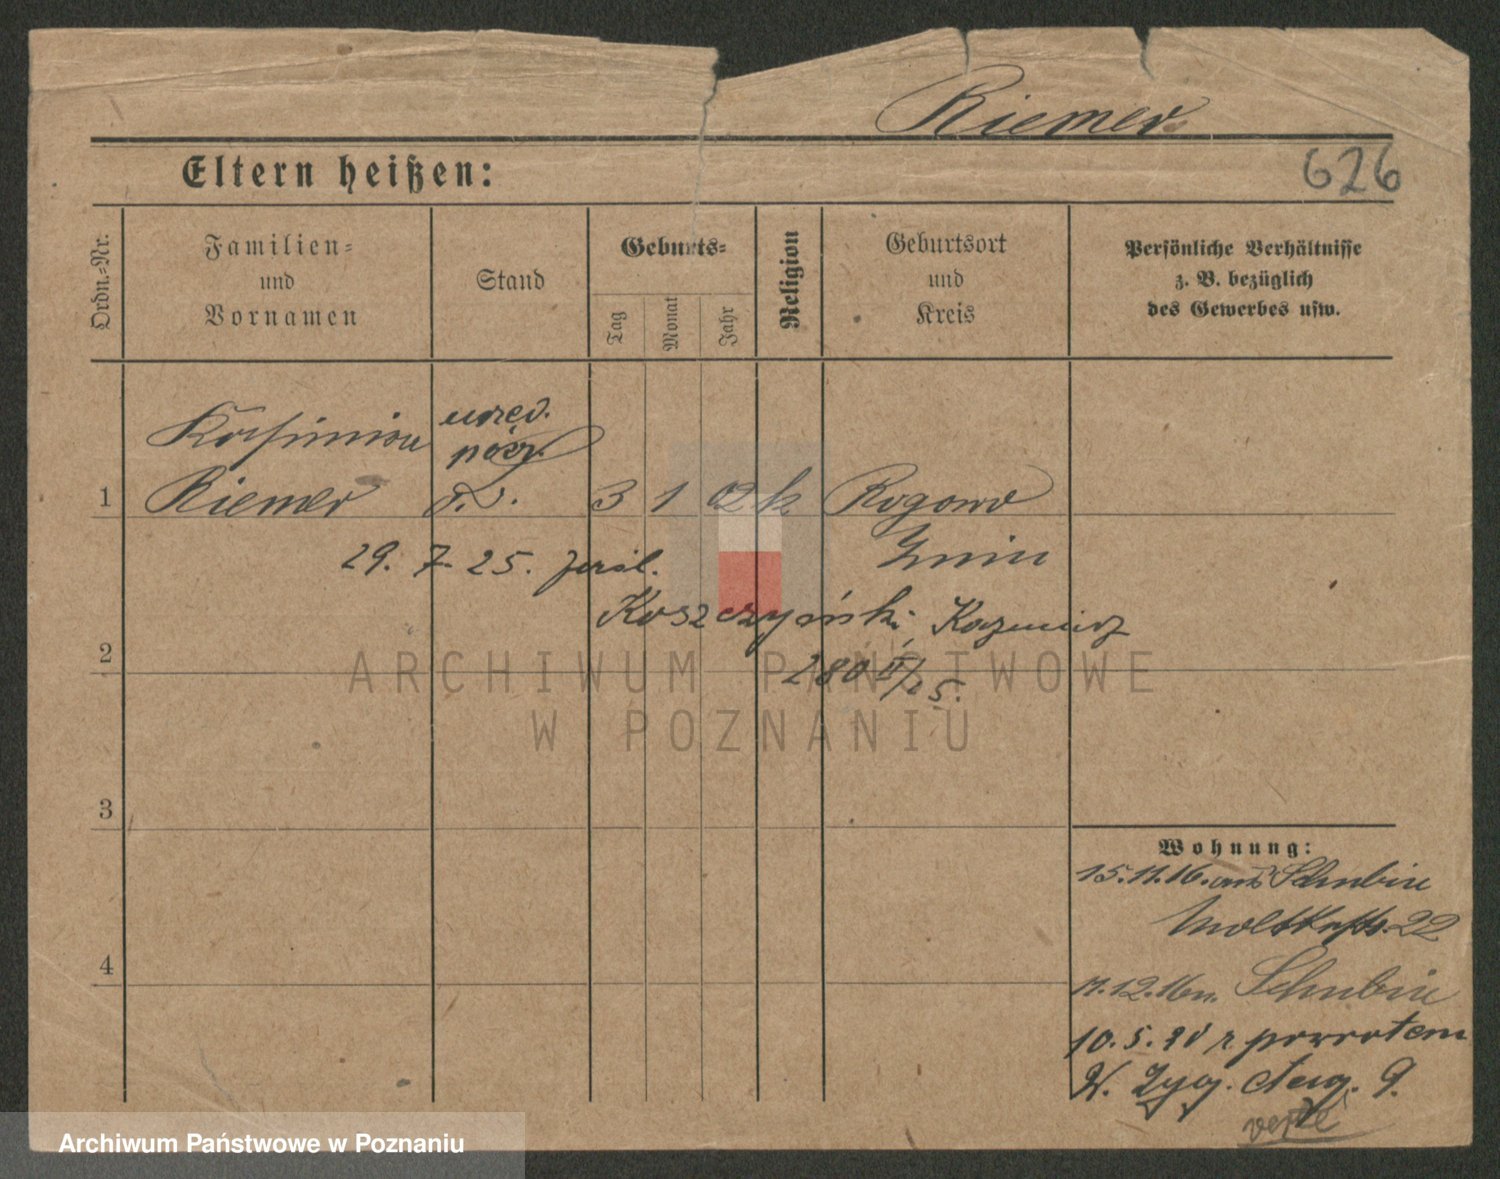 Riemer
Eltern heißen:
626
Ordn.=Nr.
Familien=
und
Vornamen
Stand
Geburts=
Tag
Monat
Jahr
Religion
Geburtsort
und
Kreis
Persönliche Verhältnisse
z. B. bezüglich
des Gewerbes usw.
urzęd.
pocz.
1 Riemer 3 1 02 k Rogowo
Żnin
29. 7. 25.
Koszczyński, Kazimierz
280 II/25.
2
ARCHIWUM PAŃSTWOWE
W POZNANIU
3
Wohnung:
15.11.16. aus Schubin
Moltkestr. 22
4
11.12.16 n. Schubin
10.5.20 z powrotem
W. Zyg. Aug. 9.
verte
Archiwum Państwowe w Poznaniu